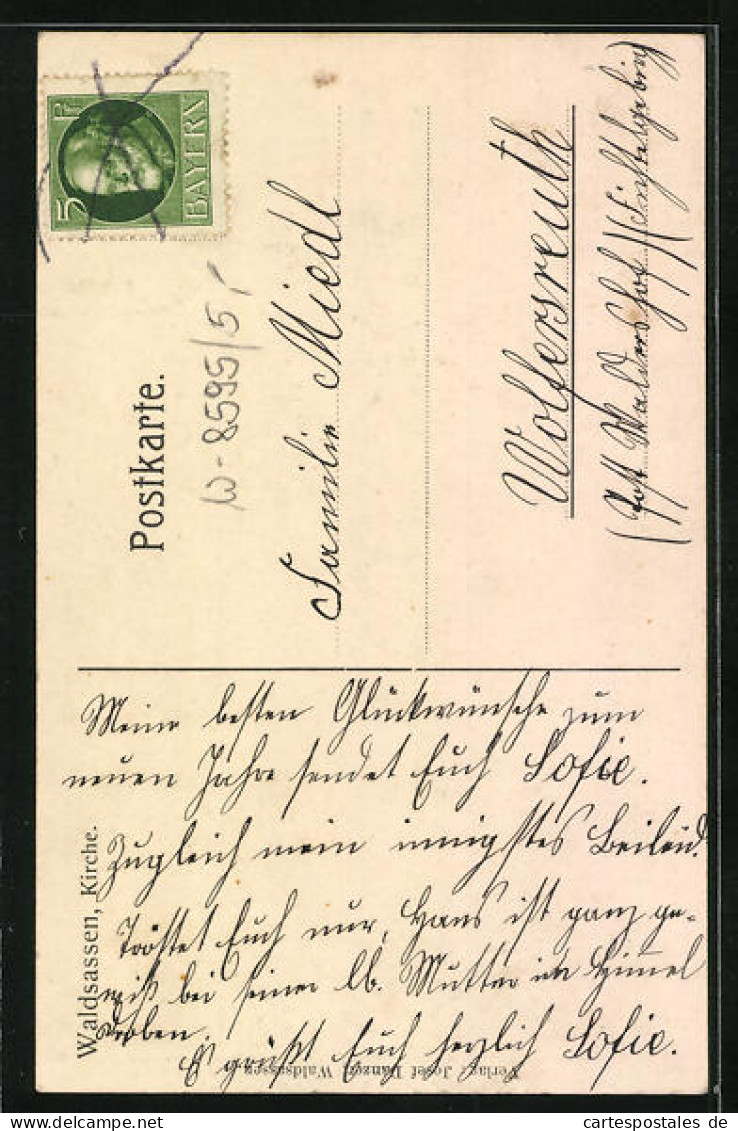 Postkarte.
5 Pf
BAYERN
W-8595/5,-
Familie Miedl
Wolfersreuth
(Post Waldershof) (Fichtelgebirg)
Meine besten Glückwünsche zum
neuen Jahre sendet Euch Sofie.
Zugleich mein innigstes Beileid.
Tröstet Euch nur, Hans ist ganz ge-
wiß bei seiner lb. Mutter im Himmel
droben.
Es grüßt Euch herzlich Sofie.
Waldsassen, Kirche.
Verlag: Josef Danzer, Waldsassen.
cartespostales de